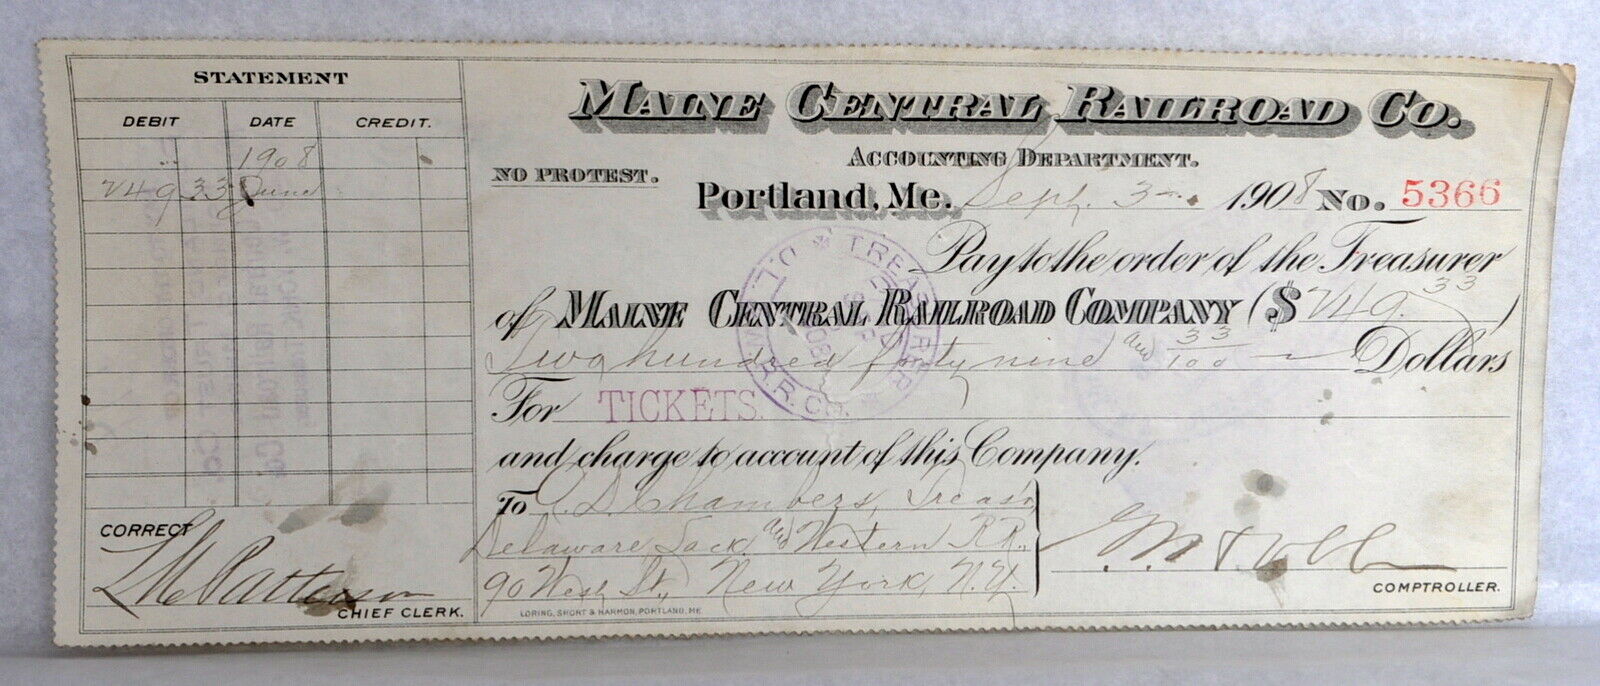 STATEMENT
DEBIT DATE CREDIT.
1908
249 33 June
CORRECT
L M Patterson
CHIEF CLERK.
MAINE CENTRAL RAILROAD CO.
ACCOUNTING DEPARTMENT.
NO PROTEST.
Portland, Me. Sept. 3 1908 No. 5366
Pay to the order of the Treasurer
of MAINE CENTRAL RAILROAD COMPANY ($ 249.33)
Two hundred forty nine and 33/100 Dollars
For TICKETS.
and charge to account of this Company.
To Chambers, Treas.,
Delaware Lack. and Western R.R.,
90 West St., New York, N.Y.
COMPTROLLER.
LORING, SHORT & HARMON, PORTLAND, ME.
TREASURER
R.R. CO.